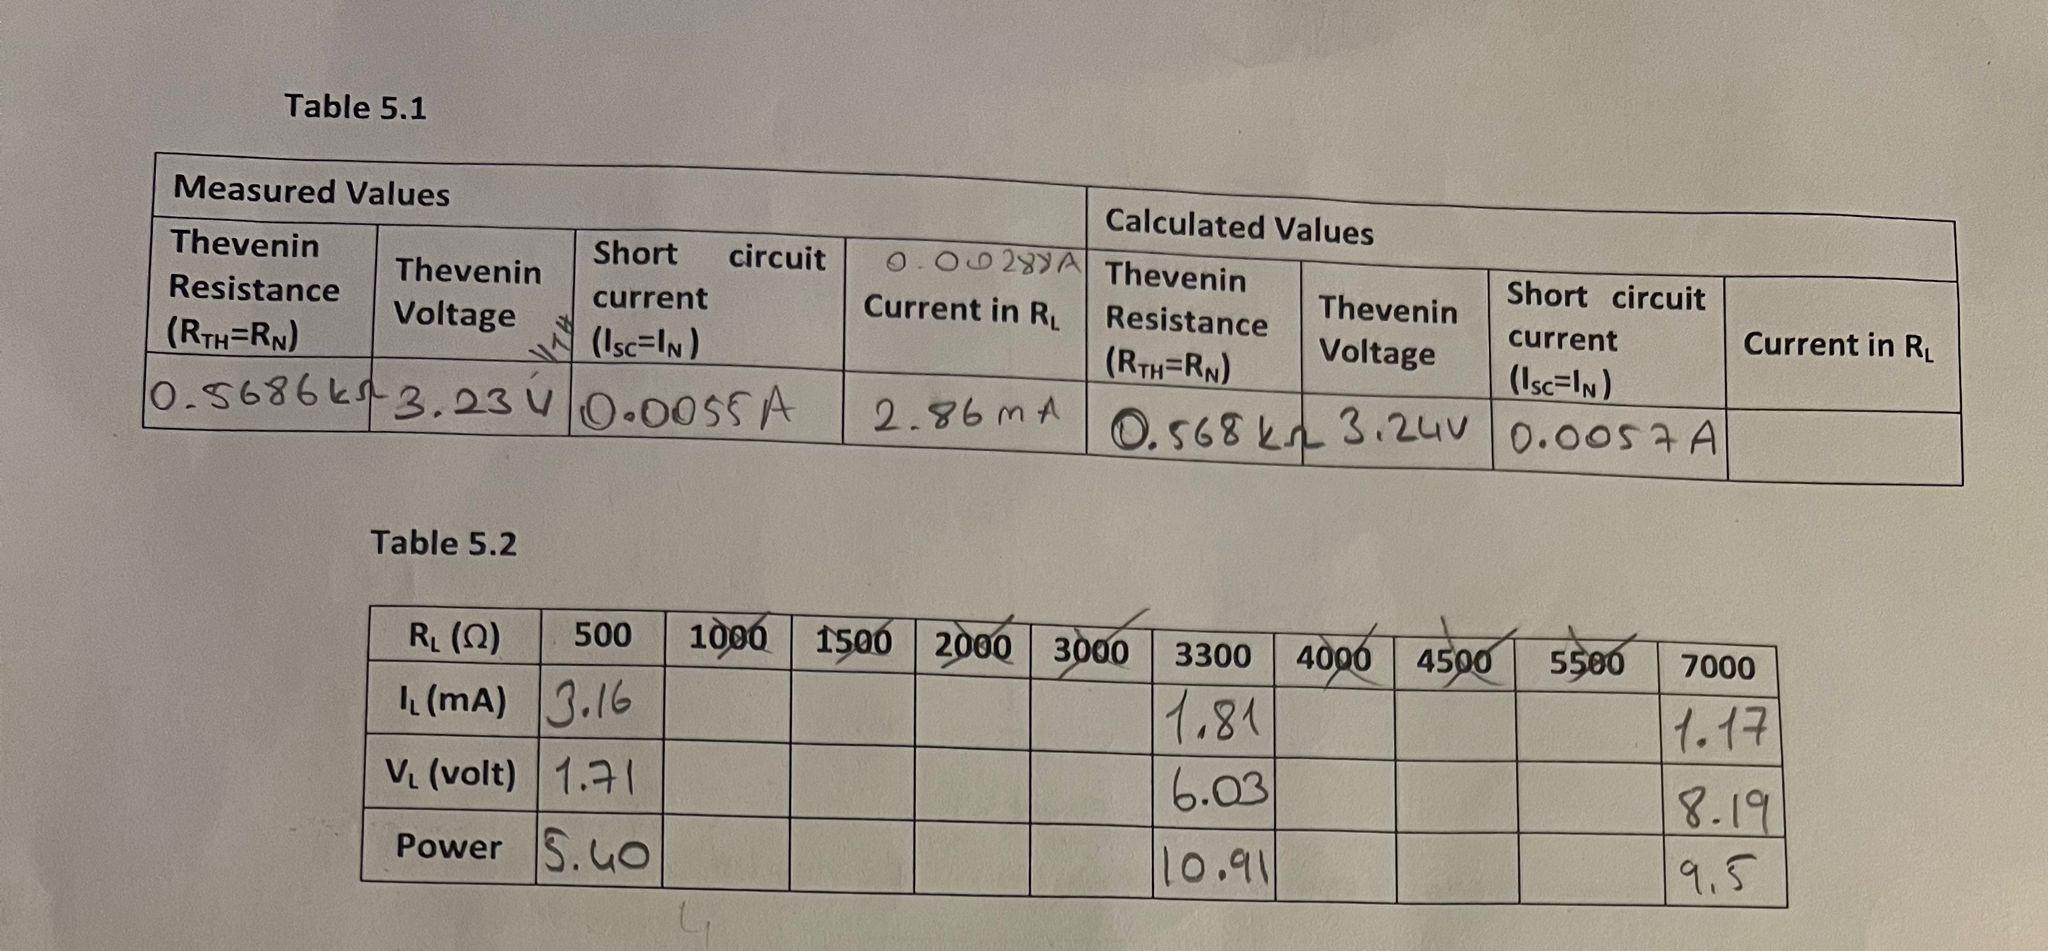 Table 5.1
Measured Values
Calculated Values
Thevenin Resistance (RTH=RN)
Thevenin Voltage
VTH
Short circuit current (ISC=IN)
Current in RL
Thevenin Resistance (RTH=RN)
Thevenin Voltage
Short circuit current (ISC=IN)
Current in RL
0.5686 kΩ 3.23 V 0.0055 A 2.86 mA 0.568 kΩ 3.24V 0.0057 A
Table 5.2
RL (Ω) 500 1000 1500 2000 3000 3300 4000 4500 5500 7000
IL (mA) 3.16 1.81 1.17
VL (volt) 1.71 6.03 8.19
Power 5.40 10.91 9.5